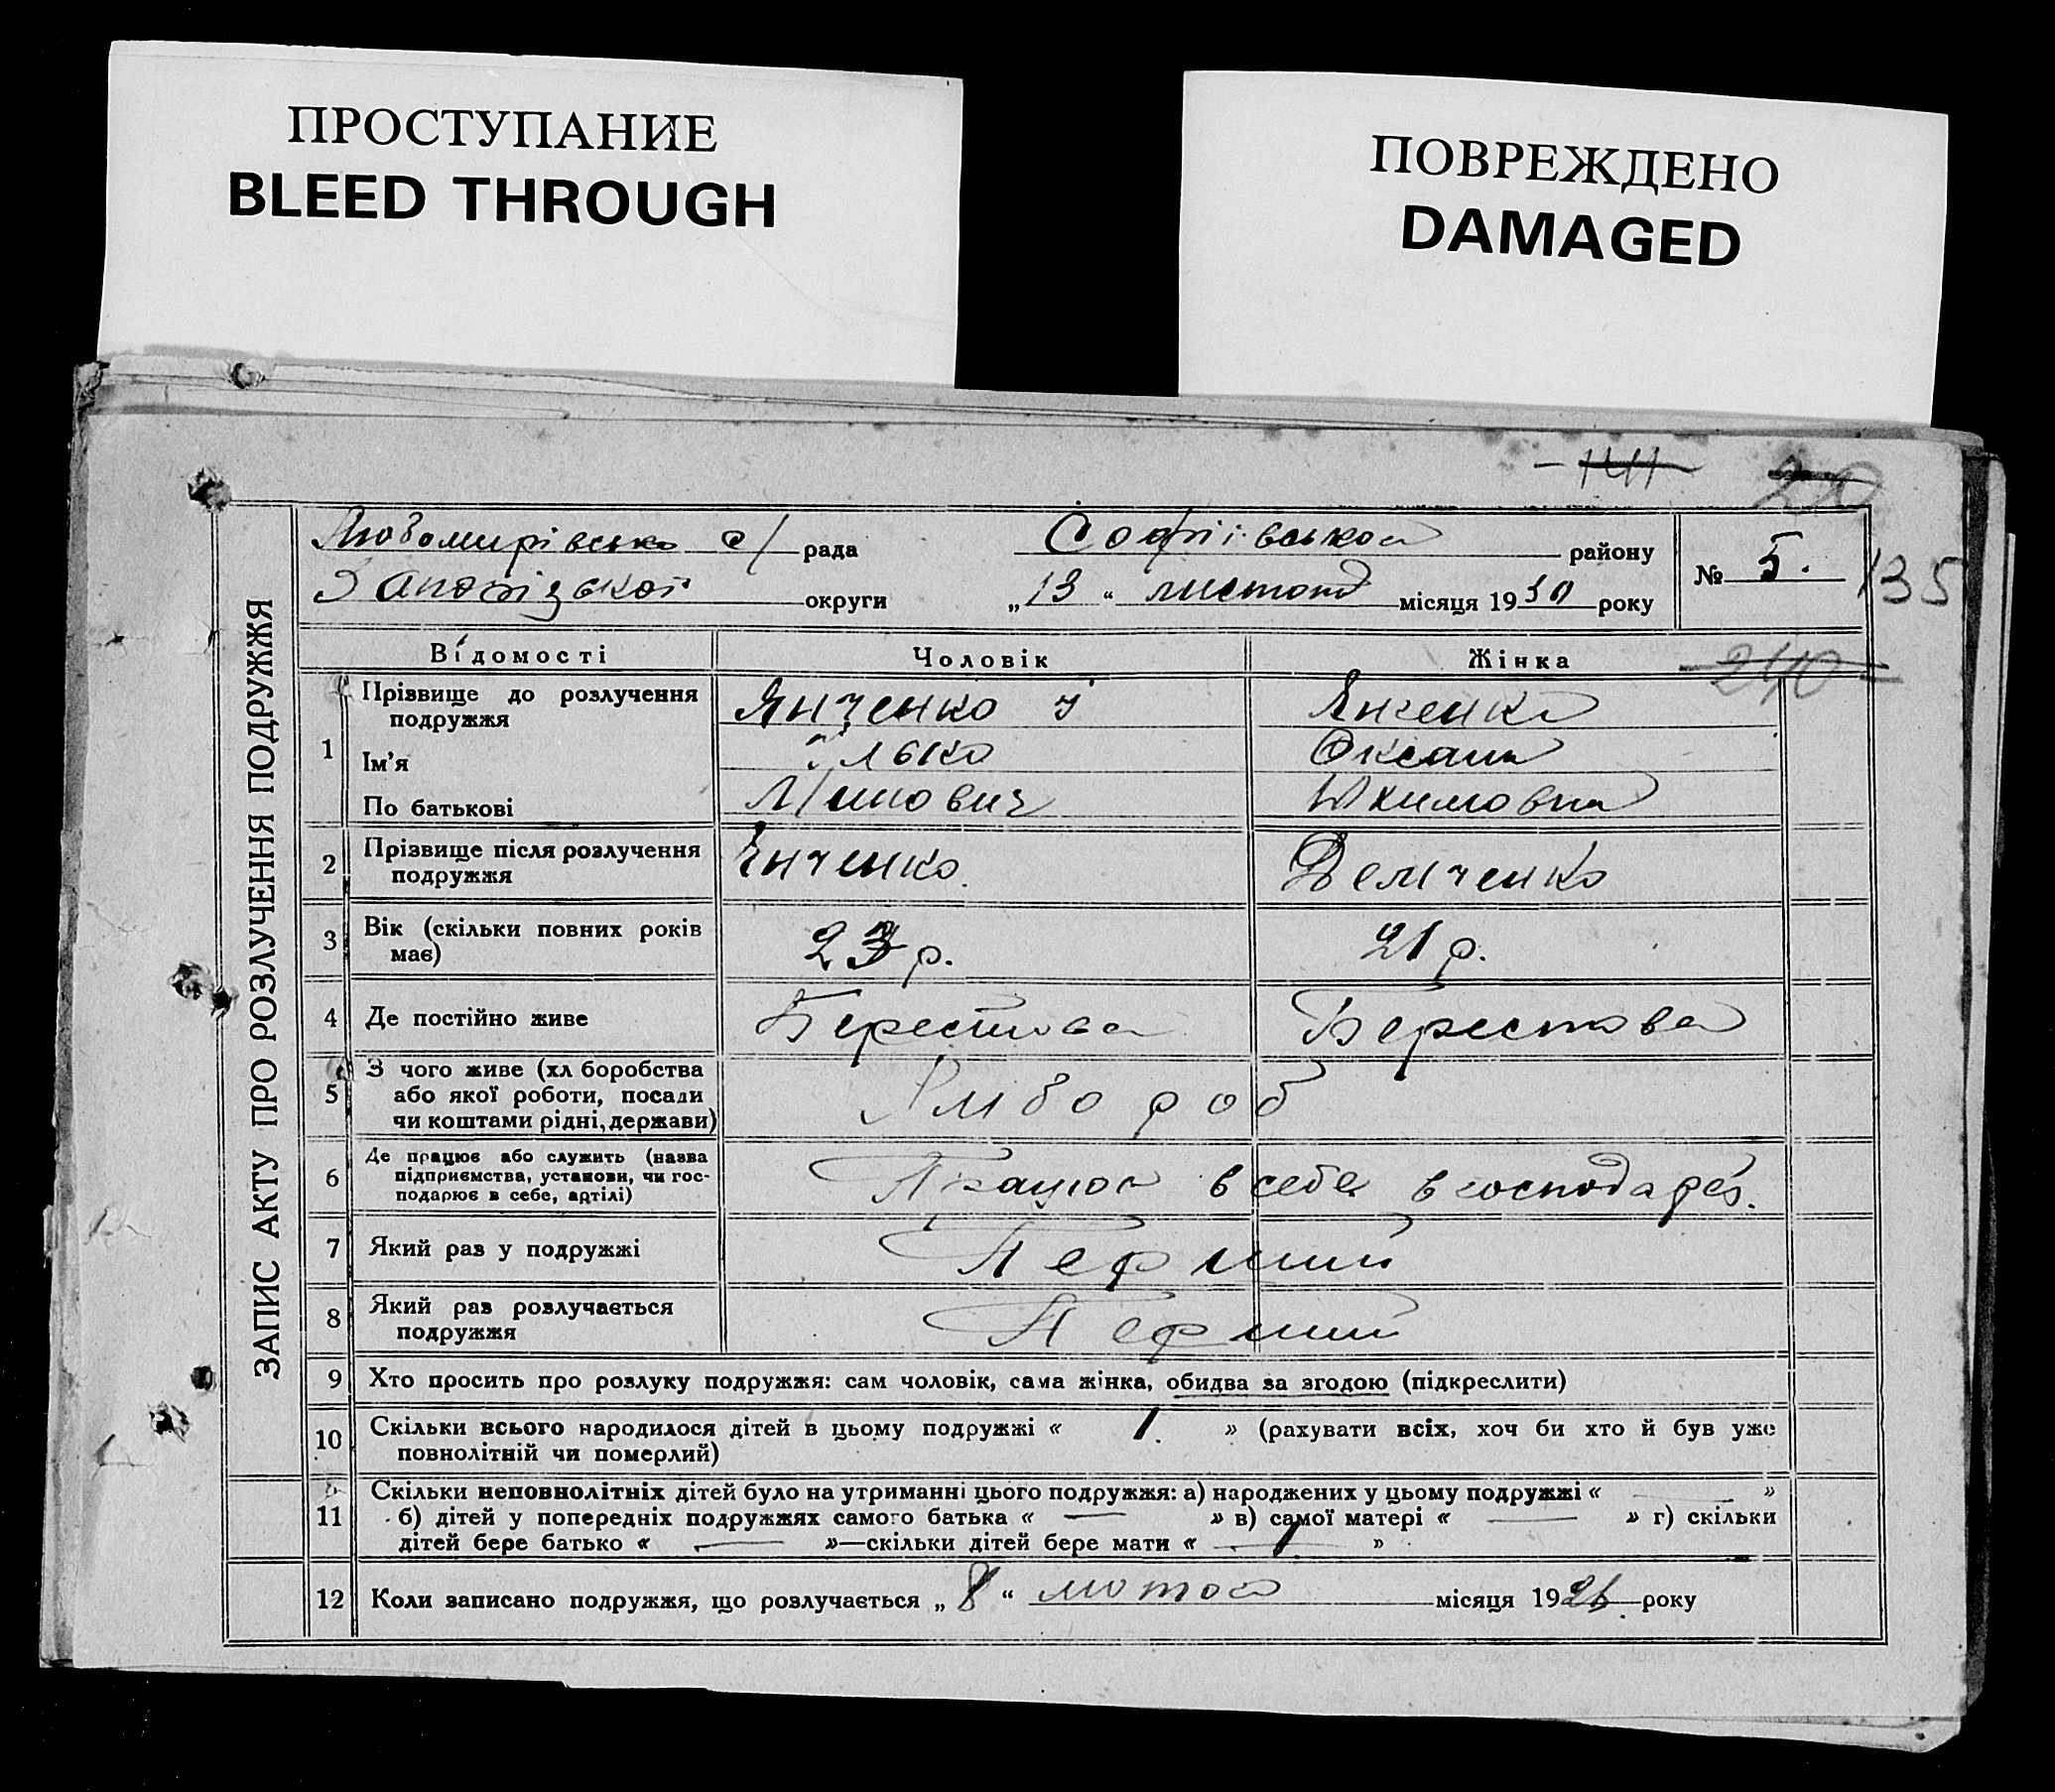 ПРОСТУПАНИЕ
BLEED THROUGH
ПОВРЕЖДЕНО
DAMAGED
135
ЗАПИС АКТУ ПРО РОЗЛУЧЕННЯ ПОДРУЖЖЯ
Любомирівсько с/ рада Софіівського району № 5.
Запорізької округи „13“ листопад місяця 1930 року
Відомості Чоловік Жінка
240
1 Прізвище до розлучення подружжя Янченко Янченко
Ім'я Ілько Оксана
По батькові Минович Юхимовна
2 Прізвище після розлучення подружжя Янченко. Демченко
3 Вік (скільки повних років має) 23 р. 21 р.
4 Де постійно живе Берестова Берестова
5 З чого живе (хл боробства або якої роботи, посади чи коштами рідні, держави) Хлібо роб
6 Де працює або служить (назва підприємства, установи, чи господарює в себе, артілі) Працює в себе в господарс.
7 Який раз у подружжі Перший
8 Який раз розлучається подружжя Перший
9 Хто просить про розлуку подружжя: сам чоловік, сама жінка, обидва за згодою (підкреслити)
10 Скільки всього народилося дітей в цьому подружжі « 1. » (рахувати всіх, хоч би хто й був уже
повнолітній чи померлий)
11 Скільки неповнолітніх дітей було на утриманні цього подружжя: а) народжених у цьому подружжі « — »
б) дітей у попередніх подружжях самого батька « — » в) самої матері « — » г) скільки
дітей бере батько « — »—скільки дітей бере мати « 1 »
12 Коли записано подружжя, що розлучається „ 8 “ лютого місяця 1926. року